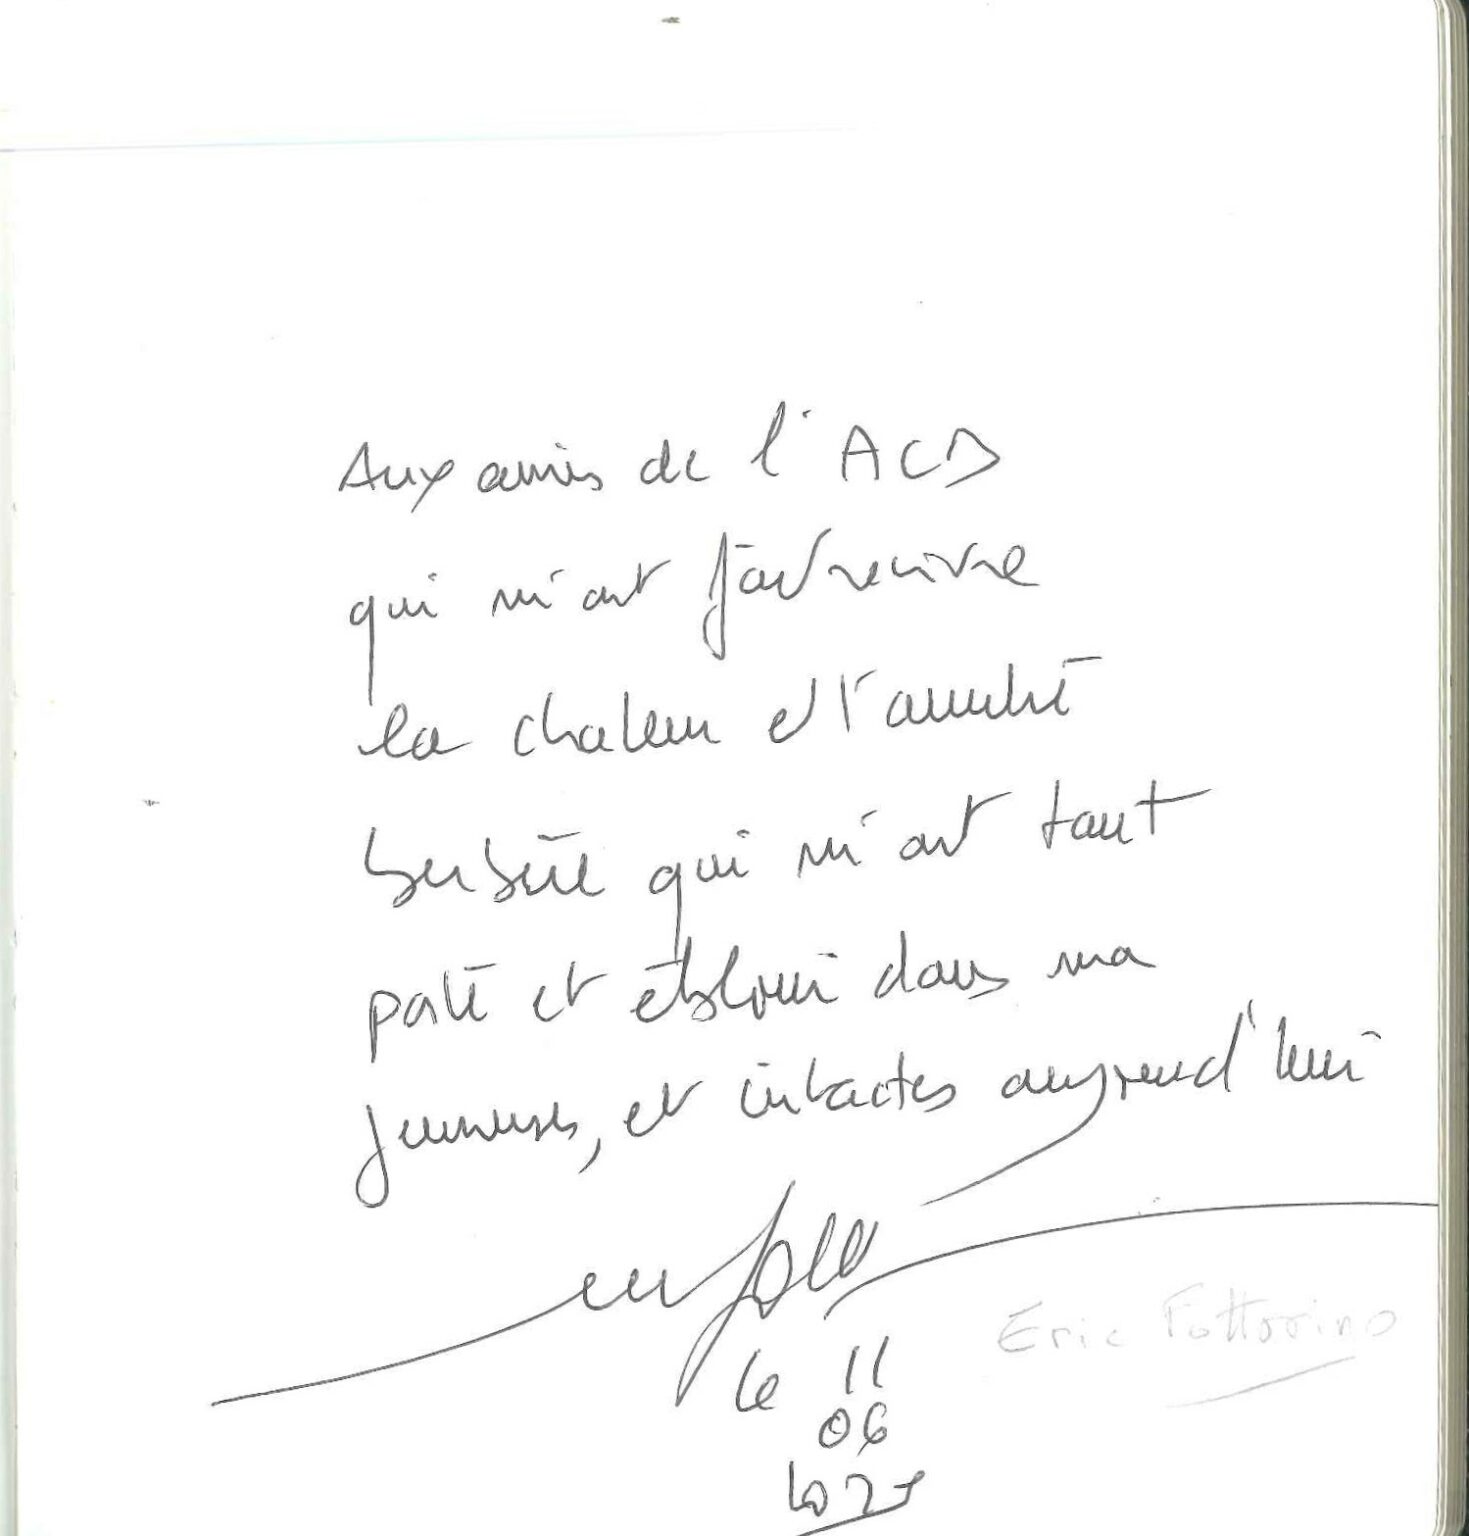 Aux amis de l'ACD
qui m'ont fait revivre
la chaleur et l'amitié
berbère qui m'ont tant
porté et ébloui dans ma
jeunesse, et intactes aujourd'hui
Eric Fottorino
le 11
06